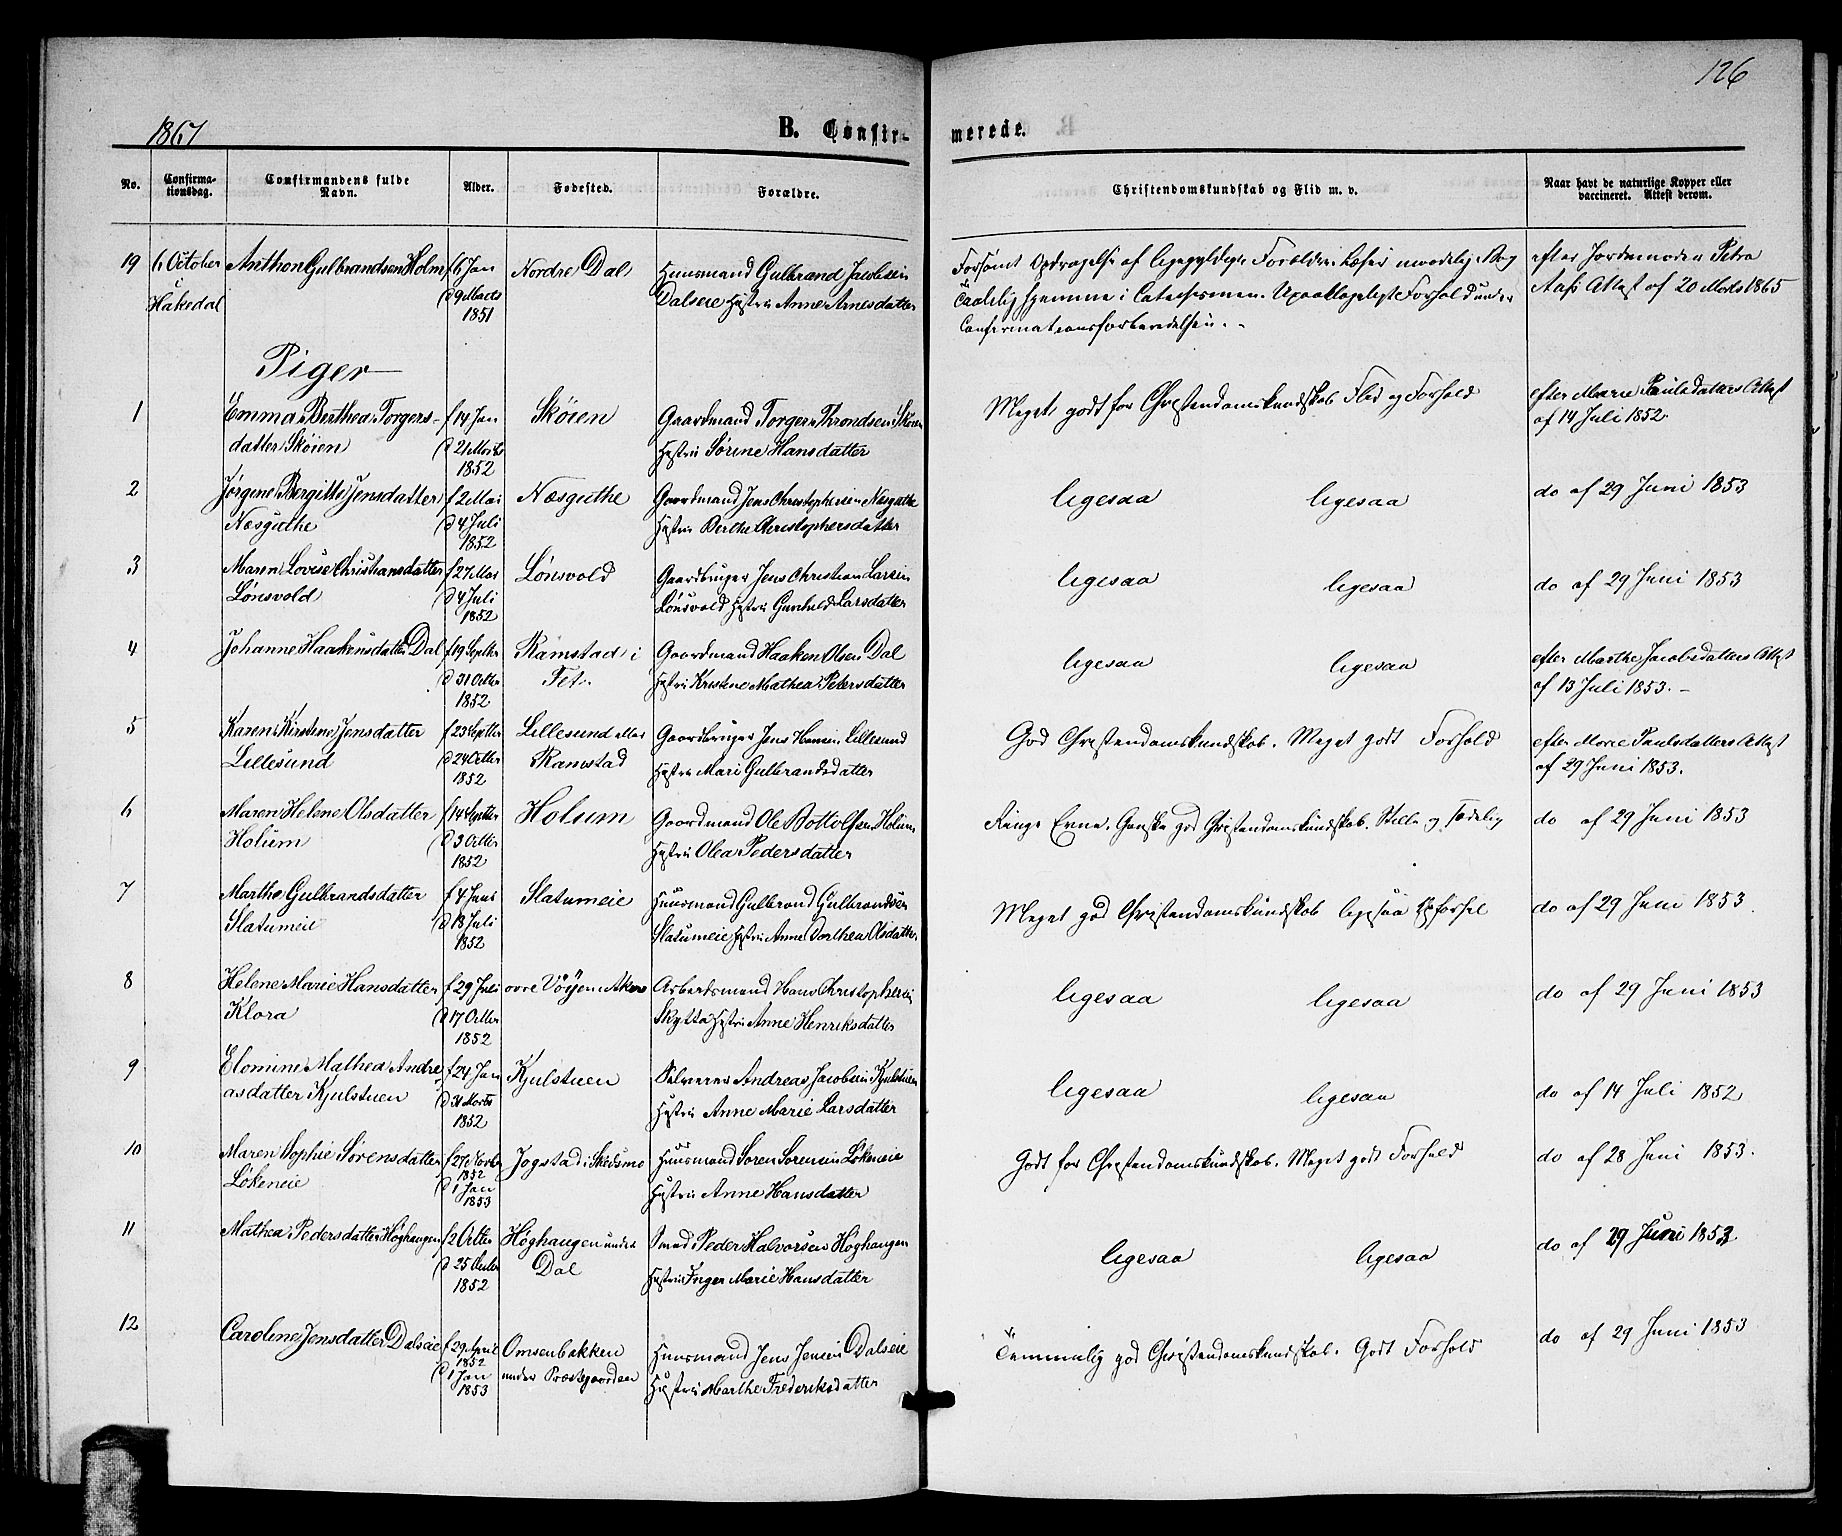 126
1867
B. Confir-
merede.
No.
Confirma-
tionsdag.
Confirmandens fulde
Navn.
Alder.
Fødested.
Forældre.
Christendomskundskab og Flid m. v.
Naar havt de naturlige Kopper eller
vaccineret. Attest derom.
19 6 October Anthon Gulbrandsen Holm f 6 Jan Nordre Dal Huusmand Gulbrand Jacobsen
Hakedal d 9 Marts Dalseie Hustru Anne Arnesdatter
1851
Forsømt Opdragelse af ligegyldige Forældre. Læser maadelig i Bog
Taalelig hjemme i Catechismen. Upaaklageligt Forhold under
Confirmationsforberedelsen. -
efter Jordemoder Petra
Aas's Attest af 20 Marts 1865
Piger
1 Emma Berthea Torgers- f 14 Jan Sköien Gaardmand Torger Throndsen Sköien
datter Sköien d 21 Marts Hustru Sörine Hansdatter
1852
Meget godt for Christendomskundskab Flid og Forhold
efter Marie Paulsdatters Attest
af 14 Juli 1852
2 Jörgine Bergitte Jensdatter f 2 Mai Næsguthe Gaardmand Jens Christophersen Næsguthe
Næsguthe d 4 Juli Hustru Berthe Christophersdatter
1852
ligesaa ligesaa do af 29 Juni 1853
3 Maren Lovise Christiansdatter f 27 Mai Lönsvold Gaardbruger Jens Christian Larsen
Lönsvold d 4 Juli Lönsvold Hustru Gunhild Larsdatter
1852
ligesaa ligesaa do af 29 Juni 1853
4 Johanne Haakensdatter Dal f 19 Septbr Ramstad i Gaardmand Haaken Olsen Dal
d 31 Octbr Fet. Hustru Kristine Mathea Petersdatter
1852
ligesaa ligesaa efter Marthe Jacobsdatters Attest
af 13 Juli 1853. -
5 Karen Kirstine Jensdatter f 23 Septbr Lillesund eller Gaardbruger Jens Hansen Lillesund
Lillesund d 24 Octbr Ramstad Hustru Mari Gulbrandsdatter
1852
God Christendomskundskab. Meget godt Forhold
efter Marie Paulsdatters Attest
af 29 Juni 1853.
6 Maren Helene Olsdatter f 14 Septbr Holum Gaardmand Ole Bottolfsen Holum
Holum d 3 Octbr Hustru Olea Pedersdatter
1852
Ringe Evne. Ganske god Christendomskundskab. Stille og sædelig
do af 29 Juni 1853
7 Marthe Gulbrandsdatter f 4 Juni Slatumeie Huusmand Gulbrand Gulbrandsen
Slatumeie d 18 Juli Slatumeie Hustru Anne Dorthea Olsdatter.
1852
Meget god Christendomskundskab ligesaa Opførsel
do af 29 Juni 1853
8 Helene Marie Hansdatter f 29 Juli övre Vöyen Aker Arbeidsmand Hans Christophersen
Klora d 17 Octbr Skytta Hustru Anne Henriksdatter
1852
ligesaa ligesaa do af 29 Juni 1853
9 Elomine Mathea Andre f 24 Jan Kjulstuen Selveier Andreas Jacobsen Kjulstuen
asdatter Kjulstuen d 31 Marts Hustru Anne Marie Larsdatter
1852
ligesaa ligesaa do af 14 Juli 1852
10 Maren Sophie Sörensdatter f 27 Novbr Jogstad i Skedsmo Huusmand Sören Sörensen Lökeneie
Lökeneie 1852 Hustru Anne Hansdatter
d 1 Jan
1853
Godt for Christendomskundskab. Meget godt Forhold
do af 28 Juni 1853.
11 Mathea Pedersdatter Höghaugen f 2 Octbr Höghaugen under Smed Peder Halvorsen Höghaugen
d 25 Dal Hustru Inger Marie Hansdatter
1852
ligesaa ligesaa do af 29 Juni 1853
12 Caroline Jensdatter Dalseie f 29 April Omsenbakken Huusmand Jens Jensen Dalseie
1852 under Præstegaarden Hustru Marthe Frederiksdatter
d 1 Jan
1853
Temmelig god Christendomskundskab. Godt Forhold
do af 29 Juni 1853